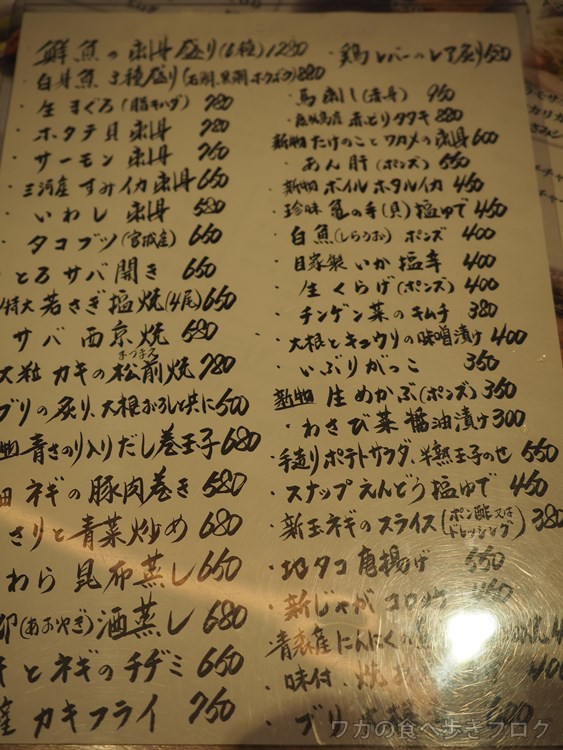 鮮魚の刺身盛り(6種)1280
白身魚3種盛り(石鯛、黒鯛、ホウボウ)880
・生まぐろ(脂キハダ) 780
・ホタテ貝刺身 780
・サーモン刺身 760
・三河産 すみイカ刺身 650
・いわし刺身 580
・タコブツ(宮城産) 650
とろサバ開き 650
特大 若さぎ塩焼(4尾) 650
サバ西京焼 580
大粒 カキの松前焼 780
まつまえ
ブリの炙り、大根おろしと共に 500
物 青さのり入りだし巻玉子 680
ネギの豚肉巻き 580
さりと青菜炒め 680
わら 昆布蒸し 650
(あおやぎ)酒蒸し 680
とネギのチヂミ 650
産 カキフライ 750
・鶏レバーのレア炙り 580
・馬刺し(赤身) 950
赤どりタタキ 880
新物 たけのことワカメの刺身 600
・あん肝(ポンズ) 550
・新物 ボイルホタルイカ 450
・珍味 亀の手(貝)塩ゆで 450
・白魚(しらうお) ポンズ 400
・自家製 いか塩辛 400
・生くらげ(ポンズ) 400
・チンゲン菜のキムチ 380
・大根とキュウリの味噌漬け 400
・いぶりがっこ 350
新物 生めかぶ(ポンズ) 350
・わさび菜 醤油漬け 300
・手造りポテトサラダ、半熟玉子のせ 550
・スナップえんどう塩ゆで 450
・新玉ネギのスライス(ポン酢又はドレッシング) 380
・地タコ唐揚げ 550
・新じゃがコロッケ
青森産にんにくの
・味付 焼 400
・ブリ
ワカの食べ歩きブログ